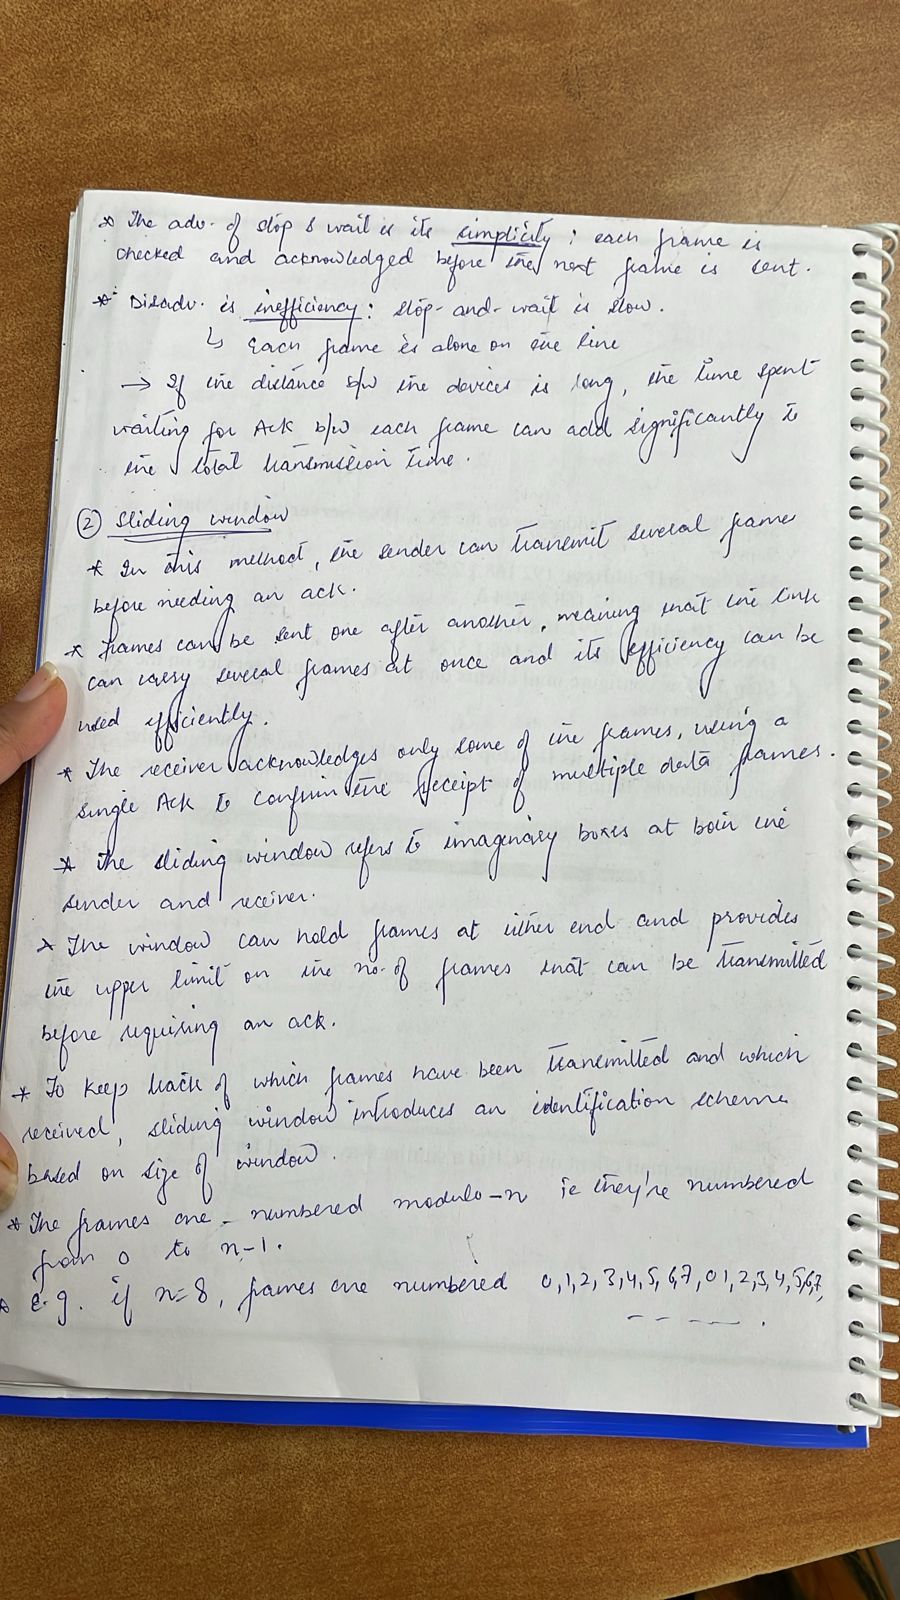 * The adv. of stop & wait is its simplicity : each frame is
checked and acknowledged before the next frame is sent.
* Disadv. is inefficiency : stop-and-wait is slow.
↳ Each frame is alone on the line
→ If the distance b/w the devices is long, the time spent
waiting for Ack b/w each frame can add significantly to
the total transmission time.
② Sliding window
* In this method, the sender can transmit several frames
before needing an ack.
* Frames can be sent one after another, meaning that the link
can carry several frames at once and its efficiency can be
used efficiently.
* The receiver acknowledges only some of the frames, using a
single Ack to confirm the receipt of multiple data frames.
* The sliding window refers to imaginary boxes at both the
sender and receiver.
* The window can hold frames at either end and provides
the upper limit on the no. of frames that can be transmitted
before requiring an ack.
* To keep track of which frames have been transmitted and which
received, sliding window introduces an identification scheme
based on size of window.
* The frames are numbered modulo-n ie they're numbered
from 0 to n-1.
* e.g. if n=8, frames are numbered 0,1,2,3,4,5,6,7,0 1,2,3,4,5,6,7,
- - - - - .